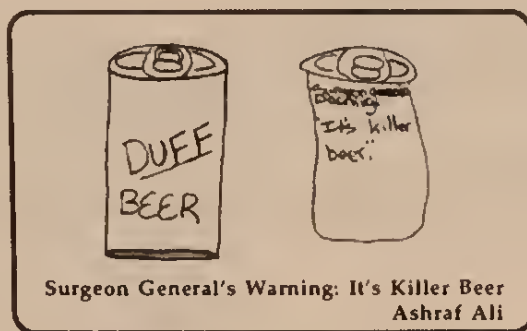 DUFF
BEER
"It's killer
beer."
Surgeon General's Warning: It's Killer Beer
Ashraf Ali